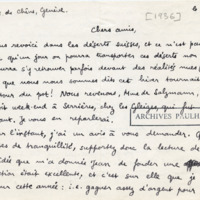 de Chêne, Genève. 6
[1936]
Chers amis,
revoici dans les déserts suisses, et ce n'est pas
qu'un jour on pourra transporter ces déserts non
se retrouver parfois devant des réalités
que nous nous sommes dits cet hiver tournait
du pot! Nous revenons, Mme de Salzmann,
week-end à Serrières, chez les
, je vous en reparlerai.
l'instant, j'ai un avis à vous demander.
de tranquillité, supportez donc la lecture de
idée que m'a donnée Jean de fonder une
était excellente, et c'est sur elle que je
cette année: i.e. gagner assez d'argent pour
ARCHIVES PAULH